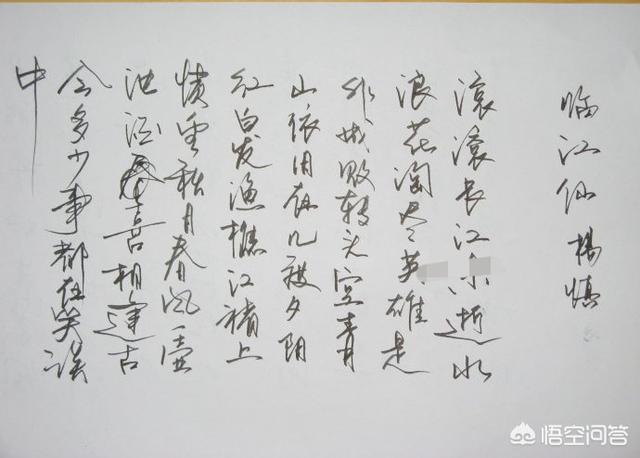 临江仙 楊慎
滚滚长江东逝水
浪花淘尽英雄是
非成败转头空青
山依旧在几度夕阳
红白发渔樵江褚上
惯看秋月春风壶
浊酒喜相逢古
今多少事都在笑谈
中
悟空问答